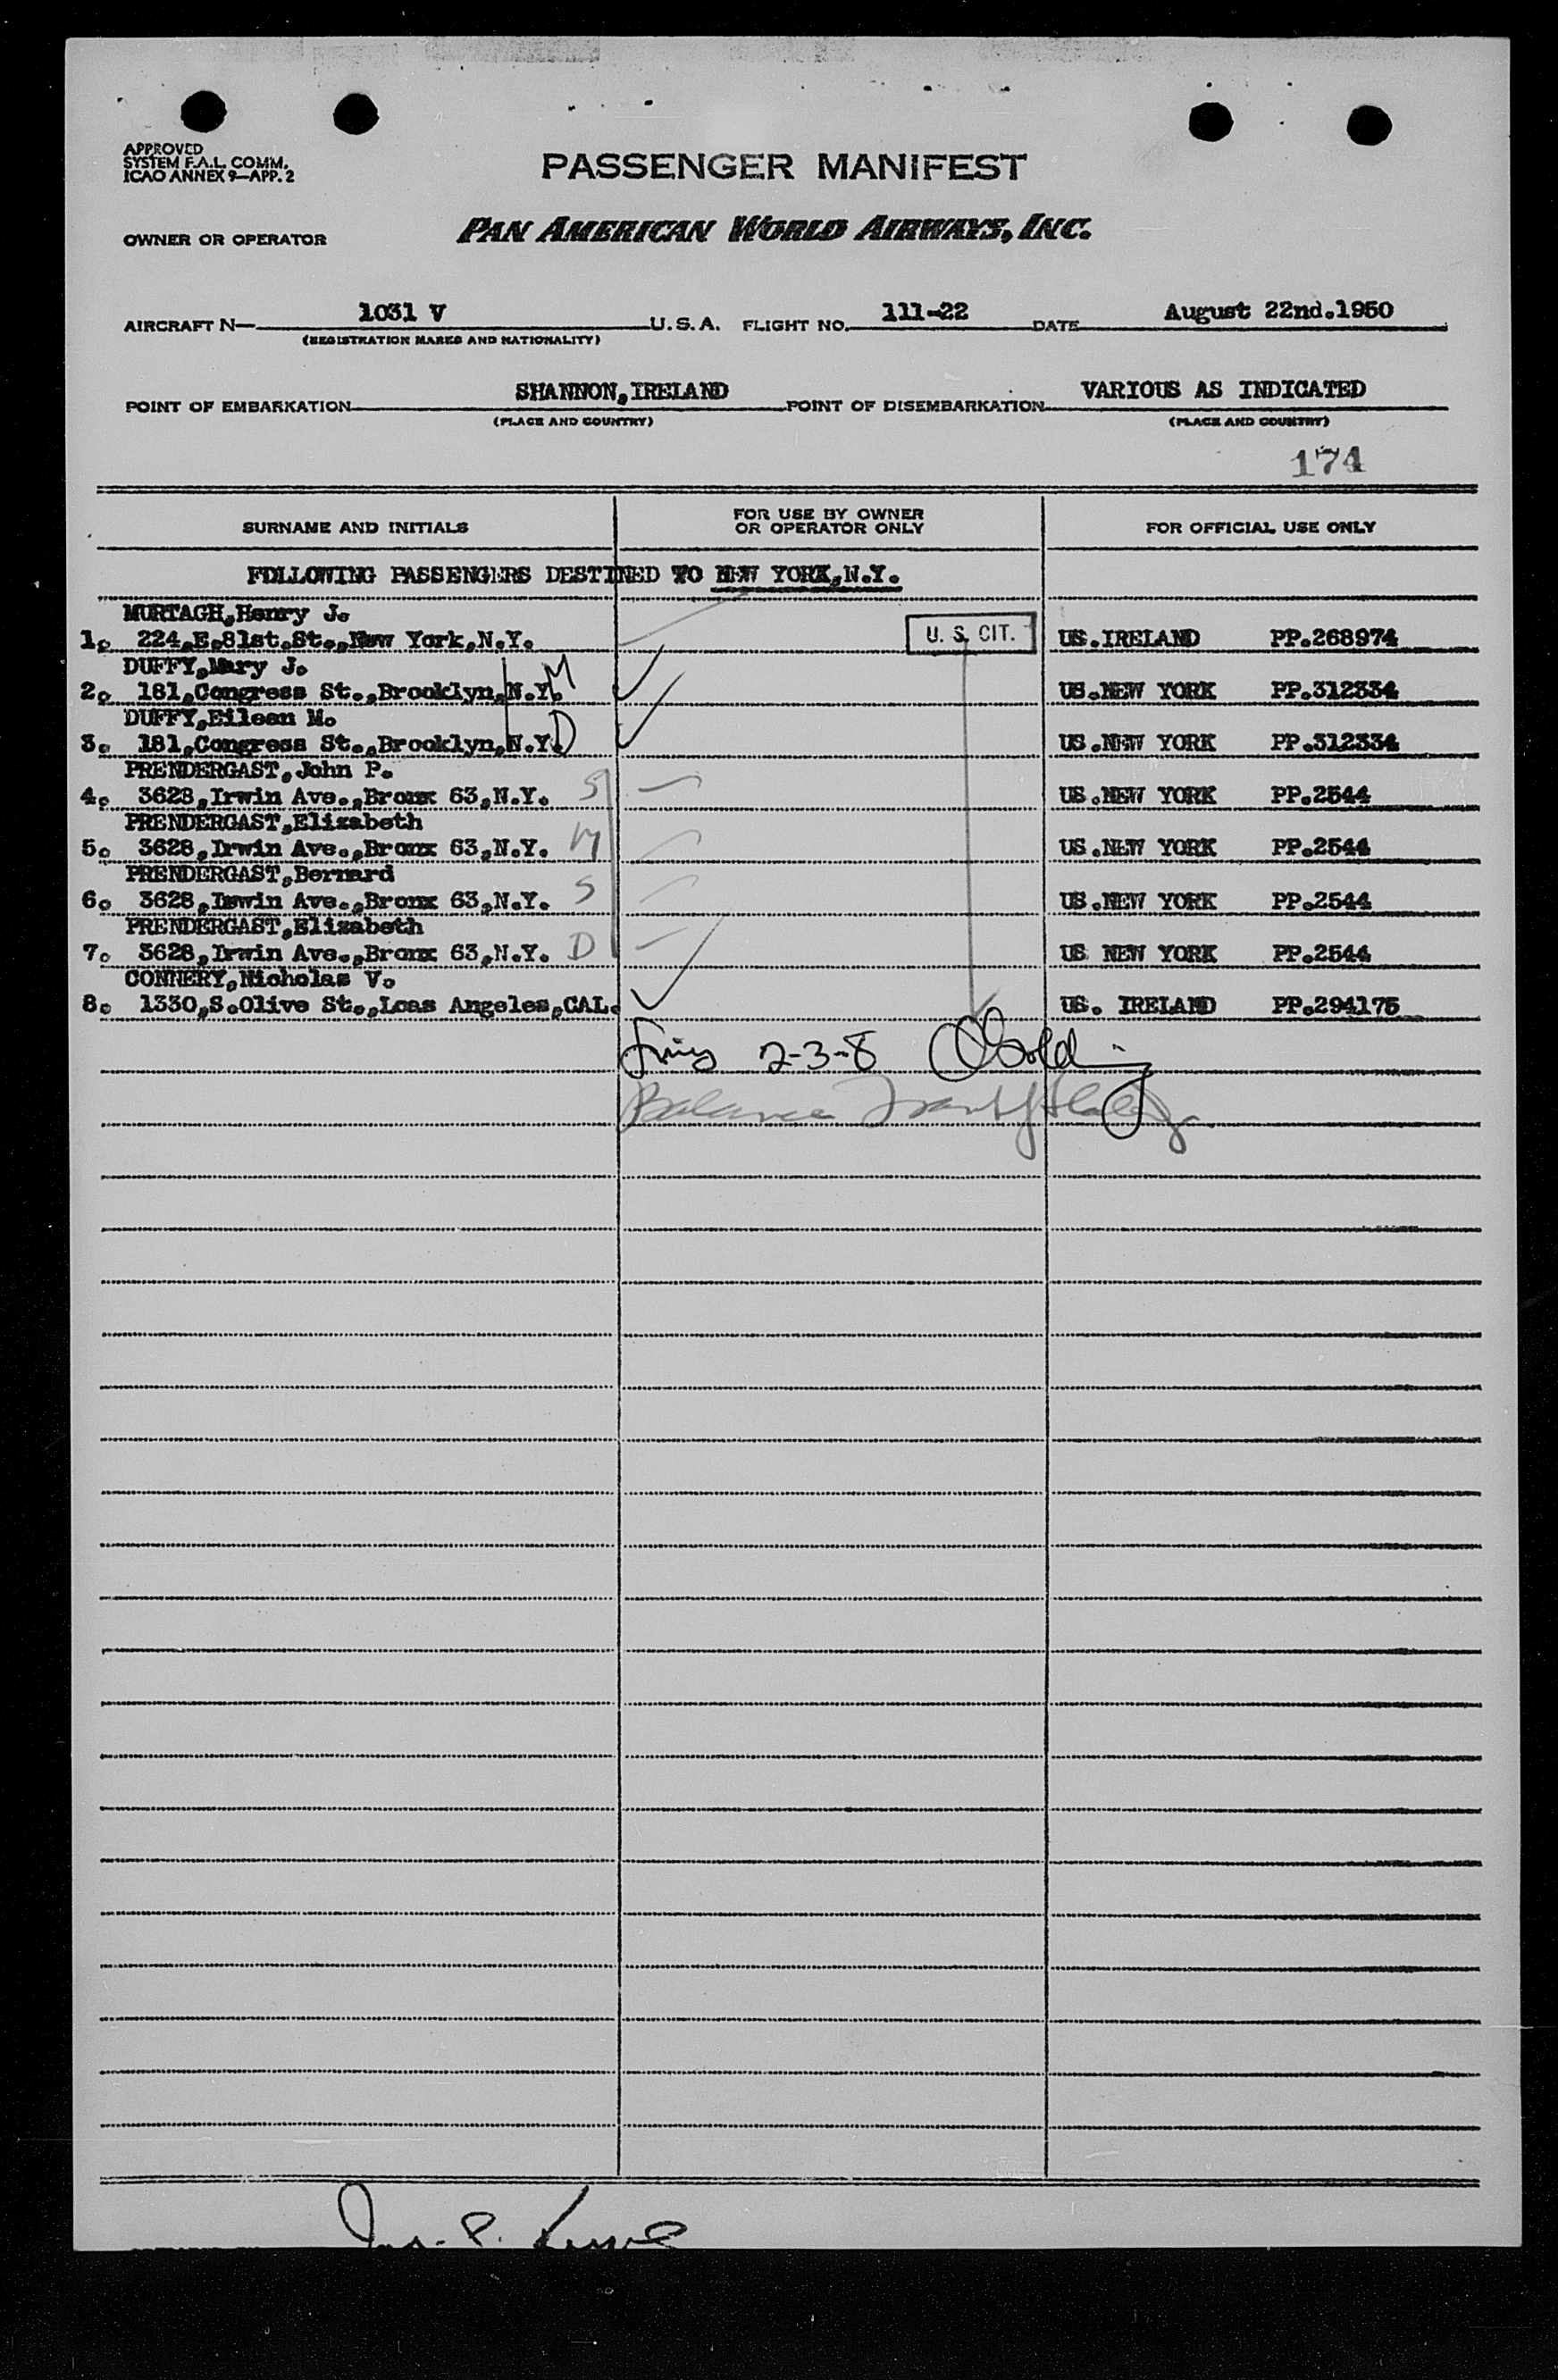 APPROVED
SYSTEM F.A.L. COMM.
ICAO ANNEX 9—APP. 2
PASSENGER MANIFEST
OWNER OR OPERATOR PAN AMERICAN WORLD AIRWAYS, INC.
AIRCRAFT N— 1031 V U.S.A. FLIGHT NO. 111-22 DATE August 22nd.1950
(REGISTRATION MARKS AND NATIONALITY)
POINT OF EMBARKATION SHANNON,IRELAND POINT OF DISEMBARKATION VARIOUS AS INDICATED
(PLACE AND COUNTRY) (PLACE AND COUNTRY)
174
SURNAME AND INITIALS FOR USE BY OWNER OR OPERATOR ONLY FOR OFFICIAL USE ONLY
FOLLOWING PASSENGERS DESTINED TO NEW YORK,N.Y.
MURTAGH,Henry J.
1. 224,E.81st.St.,New York,N.Y. U. S. CIT. US.IRELAND PP.268974
DUFFY,Mary J.
2. 181,Congress St.,Brooklyn,N.Y. M US.NEW YORK PP.312334
DUFFY,Eileen M.
3. 181,Congress St.,Brooklyn,N.Y. D US.NEW YORK PP.312334
PRENDERGAST,John P.
4. 3628,Irwin Ave.,Bronx 63,N.Y. S US.NEW YORK PP.2544
PRENDERGAST,Elizabeth
5. 3628,Irwin Ave.,Bronx 63,N.Y. M US.NEW YORK PP.2544
PRENDERGAST,Bernard
6. 3628,Irwin Ave.,Bronx 63,N.Y. S US.NEW YORK PP.2544
PRENDERGAST,Elizabeth
7. 3628,Irwin Ave.,Bronx 63,N.Y. D US NEW YORK PP.2544
CONNERY,Nicholas V.
8. 1330,S.Olive St.,Loas Angeles,CAL. US. IRELAND PP.294175
2-3-8
Balance